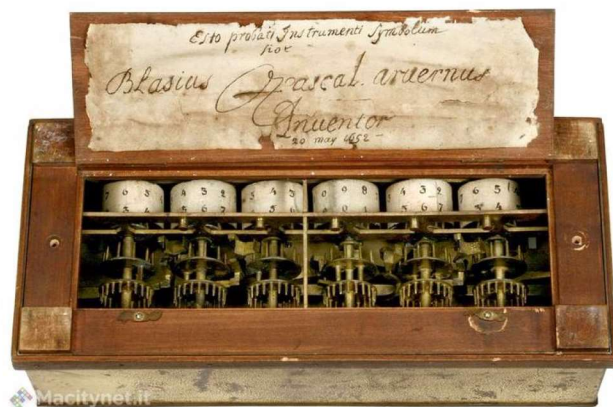 Esto probati Instrumenti Symbolum
hoc
Blasius Pascal. arvernus
Inventor
20 may 1652
7 6 5
4 3 2
5 4 3
0 9 8
4 3 2
6 5
Macitynet.it